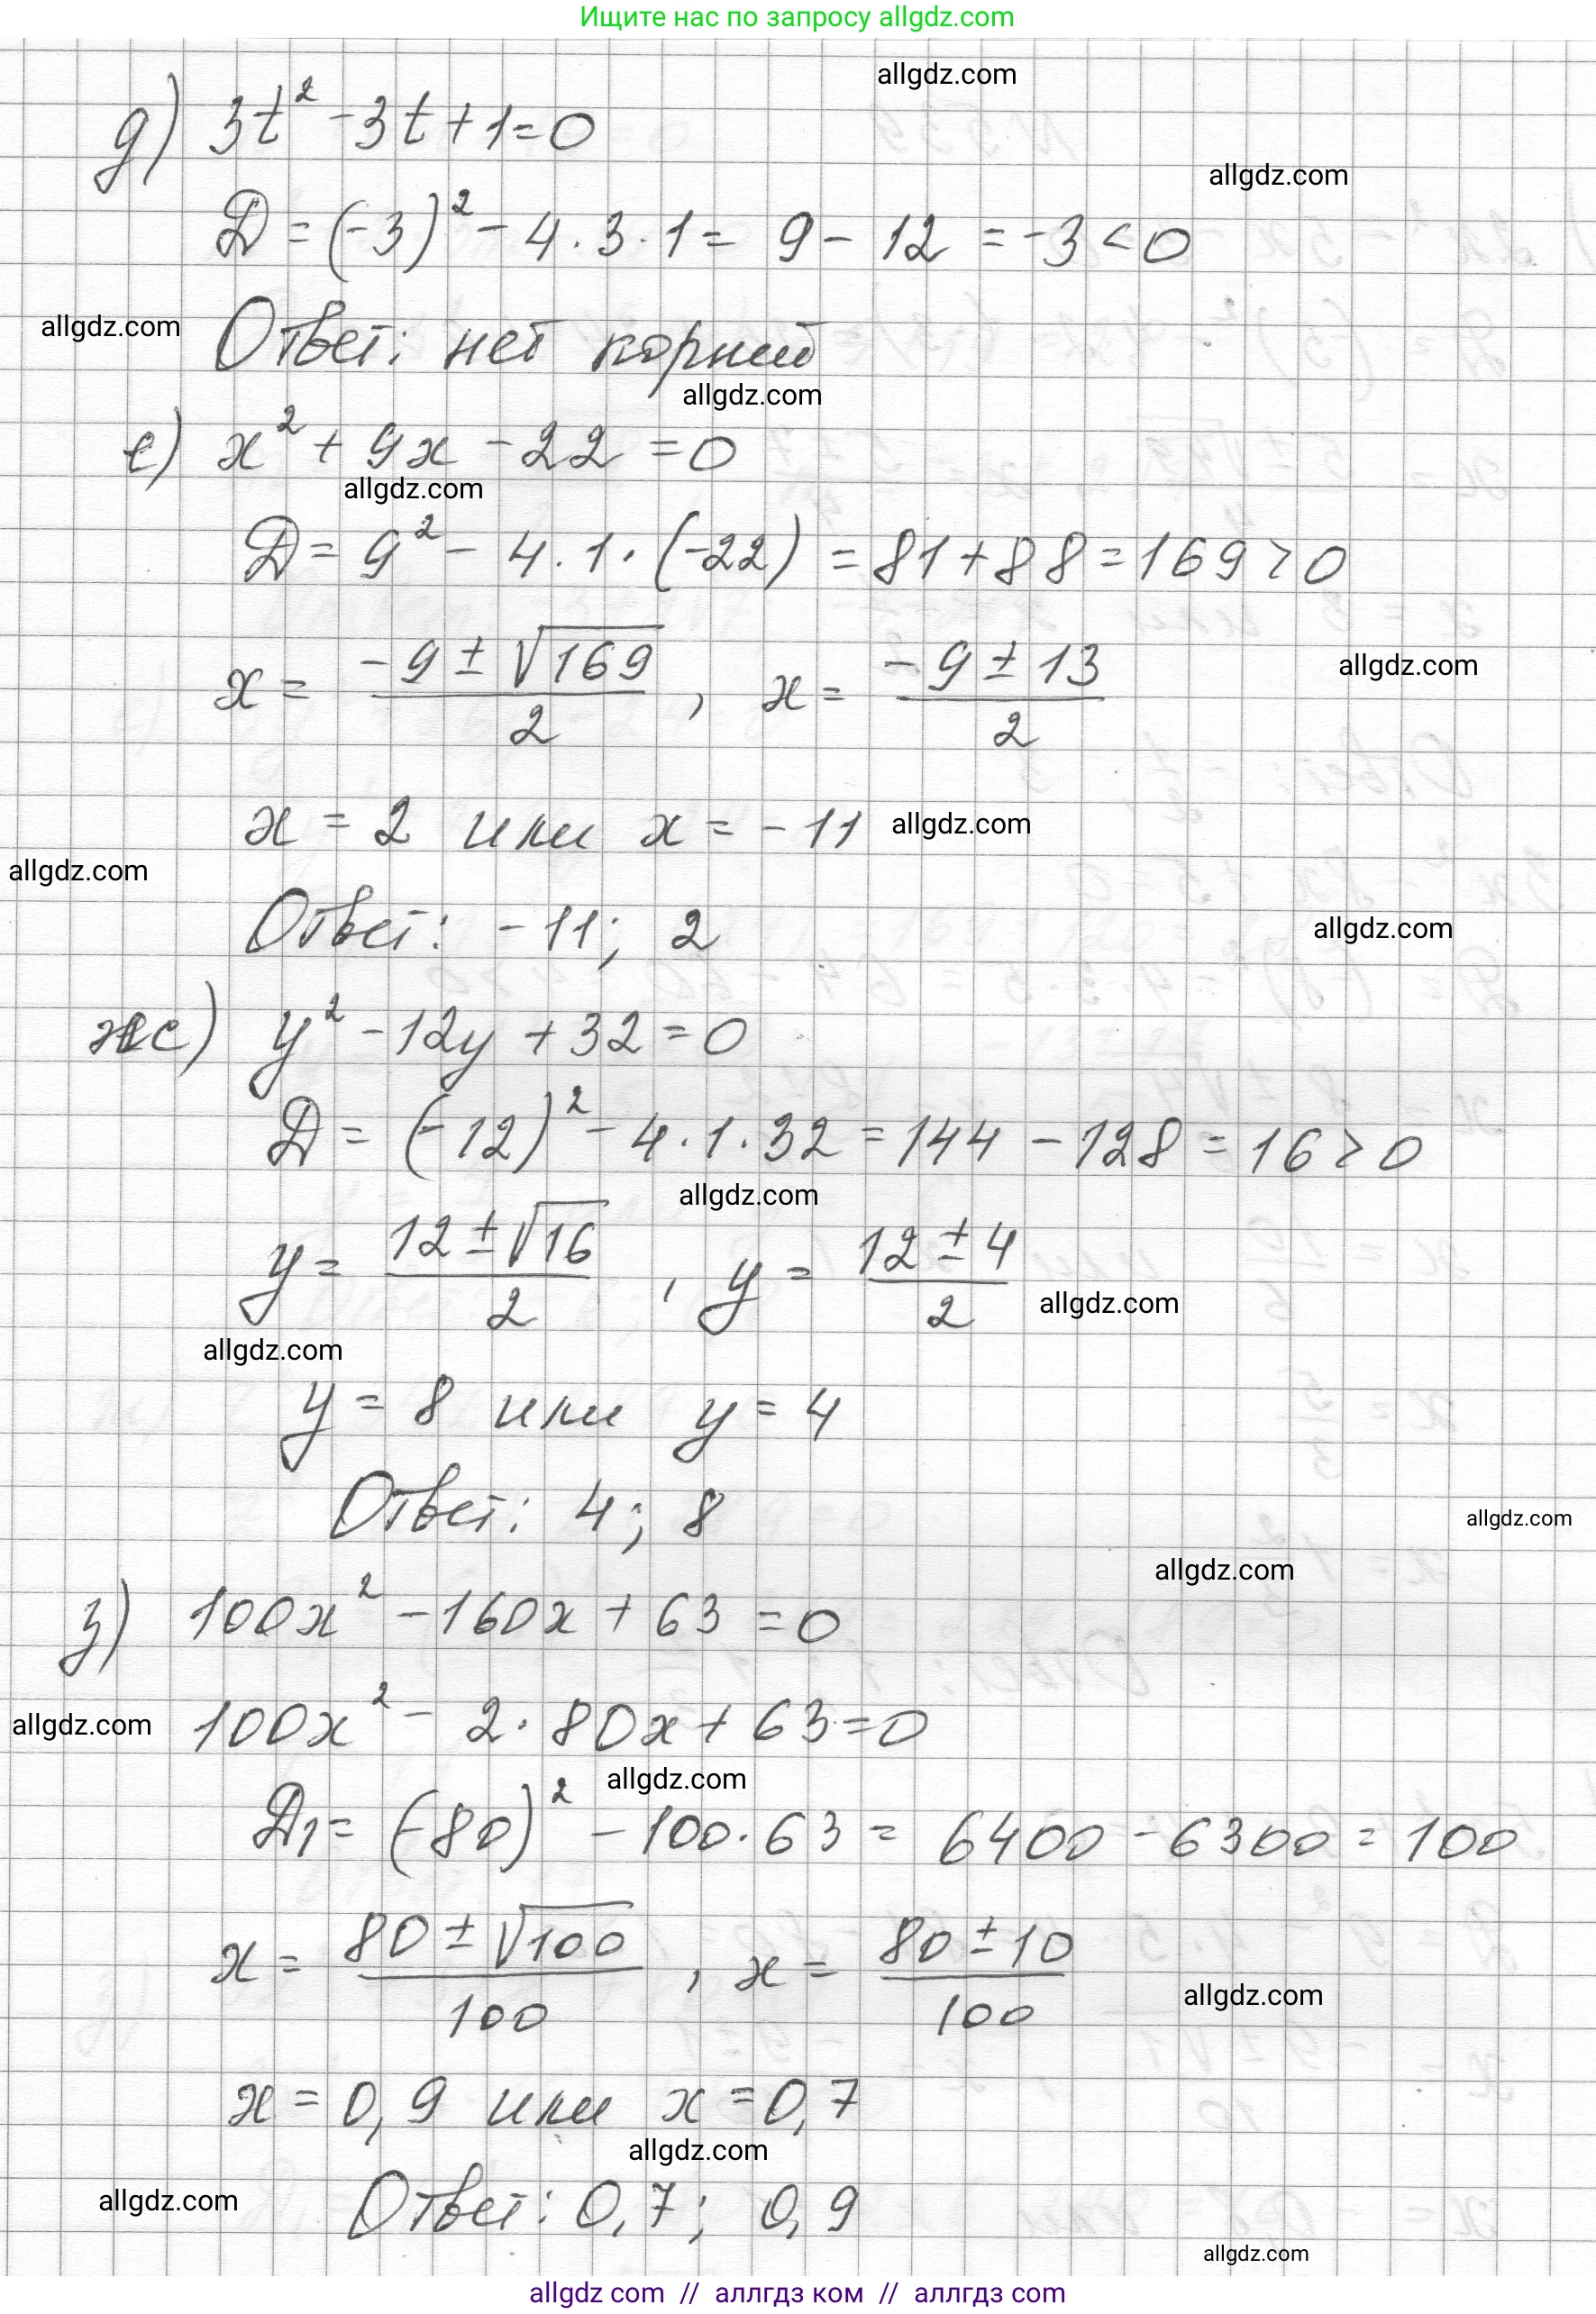 Ищите нас по запросу allgdz.com
allgdz.com
д) 3t² - 3t + 1 = 0
allgdz.com
D = (-3)² - 4 · 3 · 1 = 9 - 12 = -3 < 0
allgdz.com
Ответ: нет корний
allgdz.com
е) x² + 9x - 22 = 0
allgdz.com
D = 9² - 4 · 1 · (-22) = 81 + 88 = 169 > 0
x = (-9 ± √169)/2 , x = (-9 ± 13)/2
allgdz.com
x = 2 или x = -11
allgdz.com
allgdz.com
Ответ: -11; 2
allgdz.com
ж) y² - 12y + 32 = 0
D = (-12)² - 4 · 1 · 32 = 144 - 128 = 16 > 0
allgdz.com
y = (12 ± √16)/2 , y = (12 ± 4)/2
allgdz.com
allgdz.com
y = 8 или y = 4
Ответ: 4; 8
allgdz.com
allgdz.com
з) 100x² - 160x + 63 = 0
allgdz.com
100x² - 2 · 80x + 63 = 0
allgdz.com
D₁ = (-80)² - 100 · 63 = 6400 - 6300 = 100
x = (80 ± √100)/100 , x = (80 ± 10)/100
allgdz.com
x = 0,9 или x = 0,7
allgdz.com
allgdz.com
Ответ: 0,7; 0,9
allgdz.com
allgdz com // аллгдз ком // аллгдз com